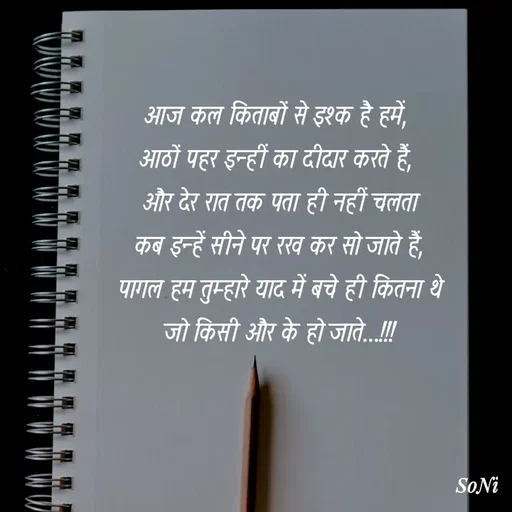 आज कल किताबों से इश्क है हमें,
आठों पहर इन्हीं का दीदार करते हैं,
और देर रात तक पता ही नहीं चलता
कब इन्हें सीने पर रख कर सो जाते हैं,
पागल हम तुम्हारे याद में बचे ही कितना थे
जो किसी और के हो जाते...!!!
SoNi